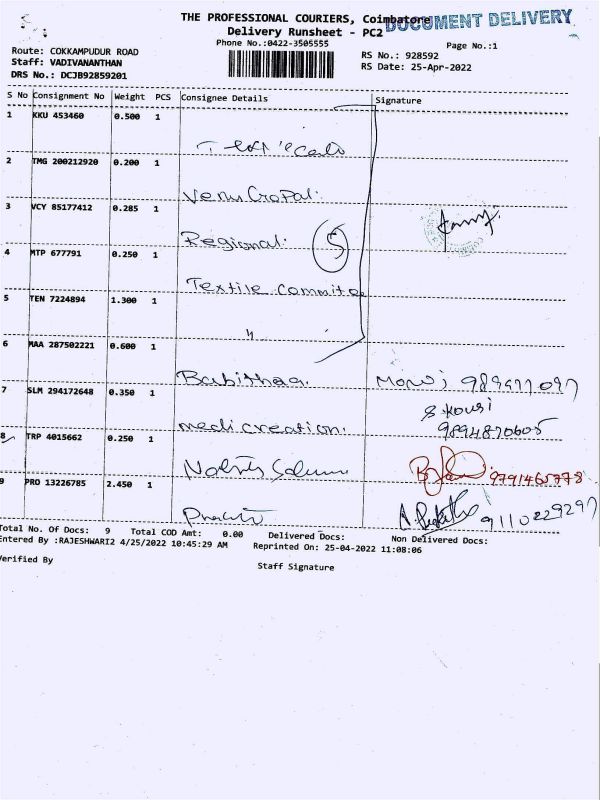 THE PROFESSIONAL COURIERS, Coimbatore
DOCUMENT DELIVERY
Delivery Runsheet - PC2
Phone No.:0422-3505555
Page No.:1
Route: COKKAMPUDUR ROAD
Staff: VADIVANANTHAN
DRS No.: DCJB92859201
RS No.: 928592
RS Date: 25-Apr-2022
S No Consignment No Weight PCS Consignee Details Signature
1 KKU 453460 0.500 1
2 TMG 200212920 0.200 1
Venu Gopal.
3 VCY 85177412 0.285 1
Regional. 5
4 MTP 677791 0.250 1
Textile committee
5 TEN 7224894 1.300 1
"
6 MAA 287502221 0.600 1
Babithaa.
7 SLM 294172648 0.350 1
S. Kousi
9894870605
medi creation.
8 TRP 4015662 0.250 1
9791465778
9 PRO 13226785 2.450 1
9110229297
Total No. Of Docs: 9 Total COD Amt: 0.00 Delivered Docs: Non Delivered Docs:
Entered By :RAJESHWARI2 4/25/2022 10:45:29 AM Reprinted On: 25-04-2022 11:08:06
Verified By
Staff Signature